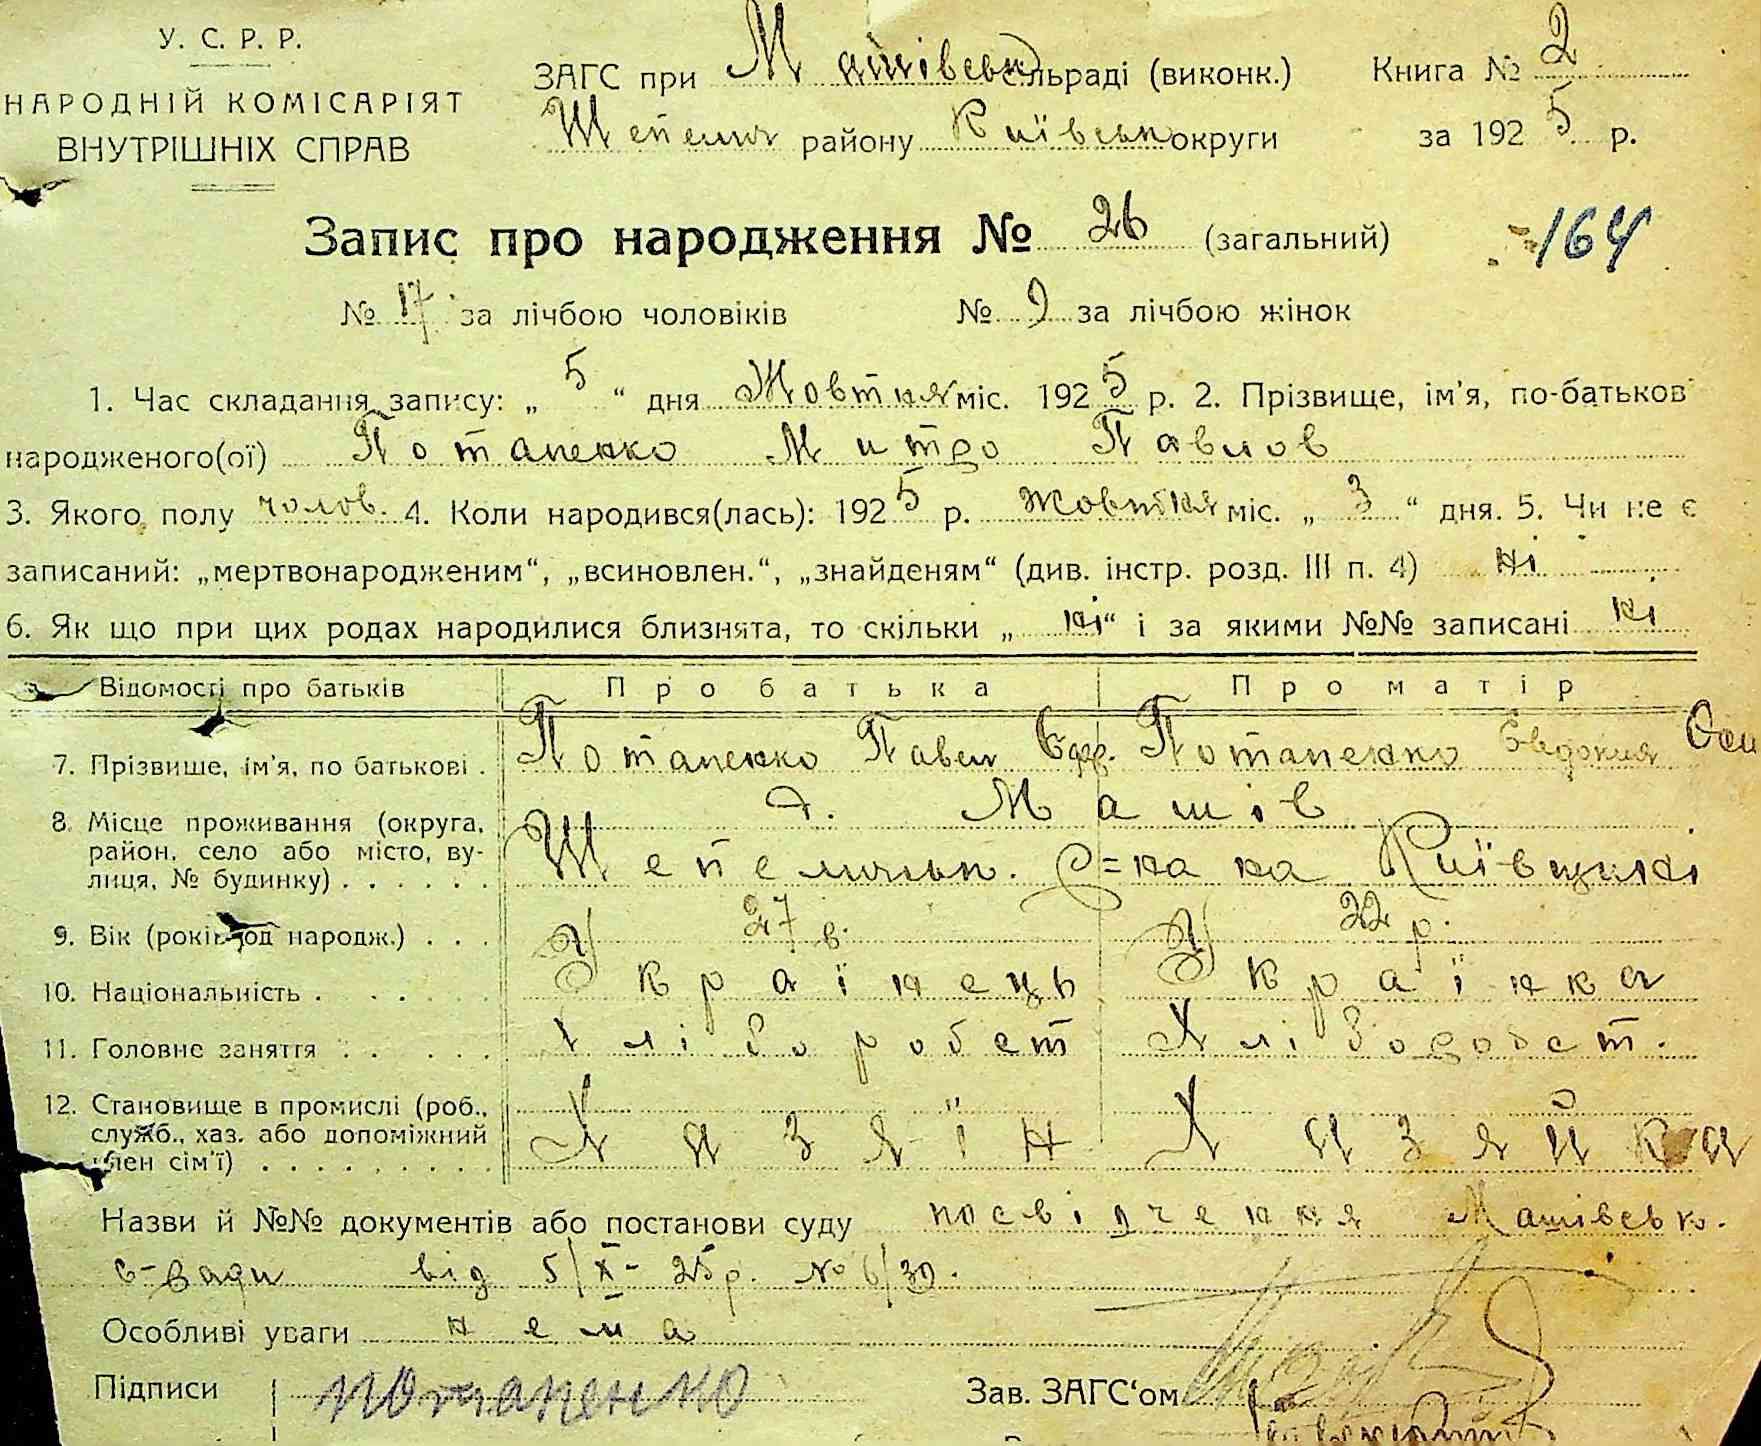 У. С. Р. Р.
НАРОДНІЙ КОМІСАРІЯТ
ВНУТРІШНІХ СПРАВ
ЗАГС при Машівськ сільраді (виконк.) Книга № 2
Шепелич району Київськ округи за 1925 р.
Запис про народження № 26 (загальний) 164
№ 17 за лічбою чоловіків № 9 за лічбою жінок
1. Час складання запису: „ 5 “ дня Жовтня міс. 1925 р. 2. Прізвище, ім'я, по-батьков
народженого(ої) Потапенко Митро Павлов
3. Якого полу чолов. 4. Коли народився(лась): 1925 р. жовтня міс. „ 3 “ дня. 5. Чи не є
записаний: „мертвонародженим“, „всиновлен.“, „знайденям“ (див. інстр. розд. III п. 4) ні
6. Як що при цих родах народилися близнята, то скільки „ ні “ і за якими №№ записані ні
Відомості про батьків Про батька Про матір
7. Прізвище, ім'я, по батькові . Потапенко Павел Єфр. Потапенко Євдокия Оси
8. Місце проживання (округа, район, село або місто, вулиця, № будинку) . . . . . . с. Машів
Шепелицьк. Р=на на Київщині
9. Вік (років од народж.) . . . 27 р. 22 р.
10. Національність . . . . . Українець Українка
11. Головне заняття . . . . . Хліборобст Хліборобст.
12. Становище в промислі (роб., служб., хаз. або допоміжний член сім'ї) . . . . . . . . . Хазяїн Хазяйка
Назви й №№ документів або постанови суду посвідчення Машівськ.
с-ради від 5/X- 25 р. № 6/30.
Особливі уваги нема
Підписи Потапенко Зав. ЗАГС‘ом